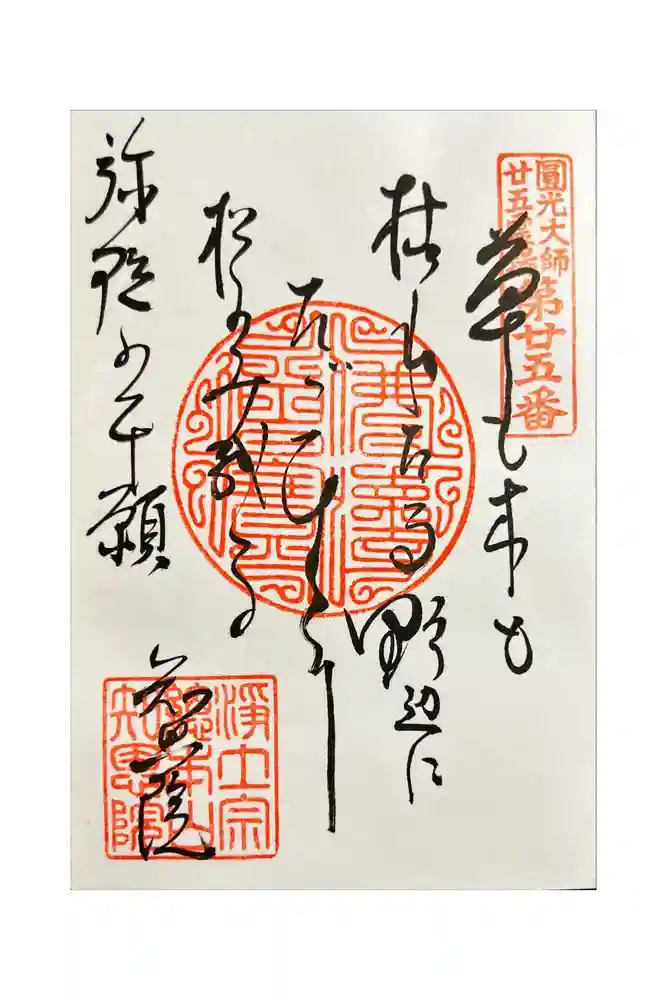 圓光大師
廿五霊場
第廿五番
草も木も
枯れたる野辺に
ただひとり
松のみ残る
弥陀の本願
知恩院
淨土宗
總本山
知恩院